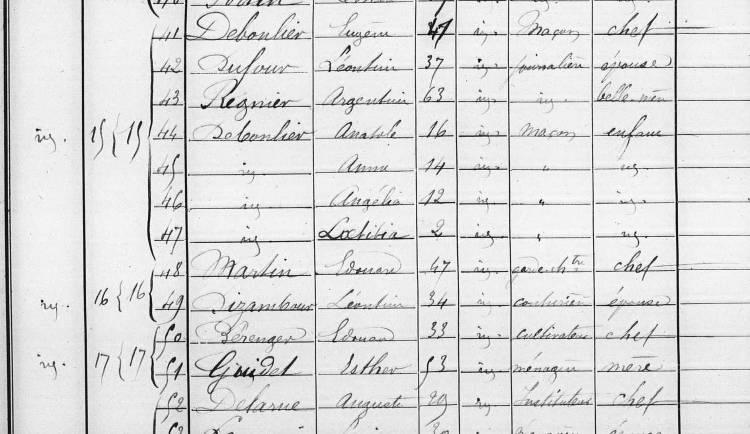 41 Deboulier Eugène 47 id. Maçon chef
42 Dufour Léontine 37 id. journalière épouse
43 Regnier Argentine 63 id. id. belle-mère
id. 15 15 44 Deboulier Anatole 16 id. Maçon enfant
45 id. Anna 14 id. " id.
46 id. Angélia 12 id. " id.
47 id. Lœtitia 2 id. " id.
48 Martin Edouard 47 id. chef
id. 16 16 49 Dizambour Léontine 34 id. couturière épouse
50 Bérenger Edouard 33 id. cultivateur chef
id. 17 17 51 Guidet Esther 53 id. ménagère mère
52 Delarue Auguste 29 id. Instituteur chef